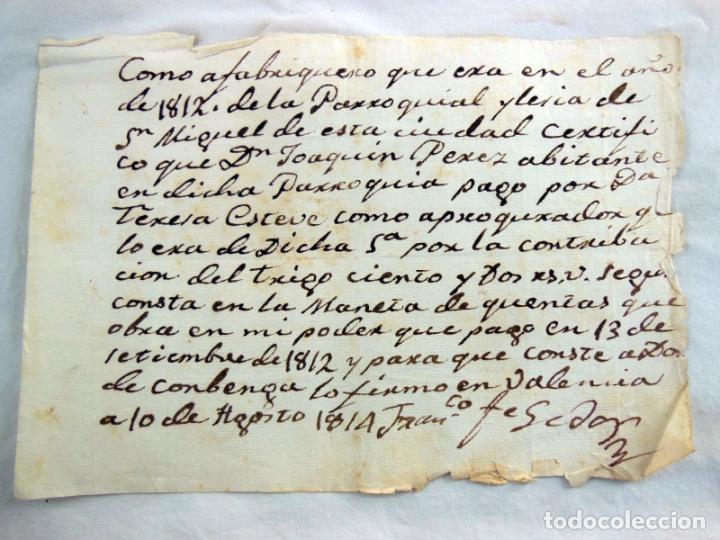 Como afabriquero que era en el año
de 1812. de la Parroquial yglesia de
Sn Miguel de esta ciudad certifi
co que Dn Joaquin Perez abitante
en dicha Parroquia pago por Da
Teresa Esteve como aproqurador q
lo era de Dicha Sa por la contribu
cion del trigo ciento y Dos rs. v. segu
consta en la Maneta de quentas que
obra en mi poder que pago en 13 de
setiembre de 1812 y para que conste a Don
de conbenga lo firmo en Valencia
a 10 de Agosto 1814 Franco
todocoleccion.net